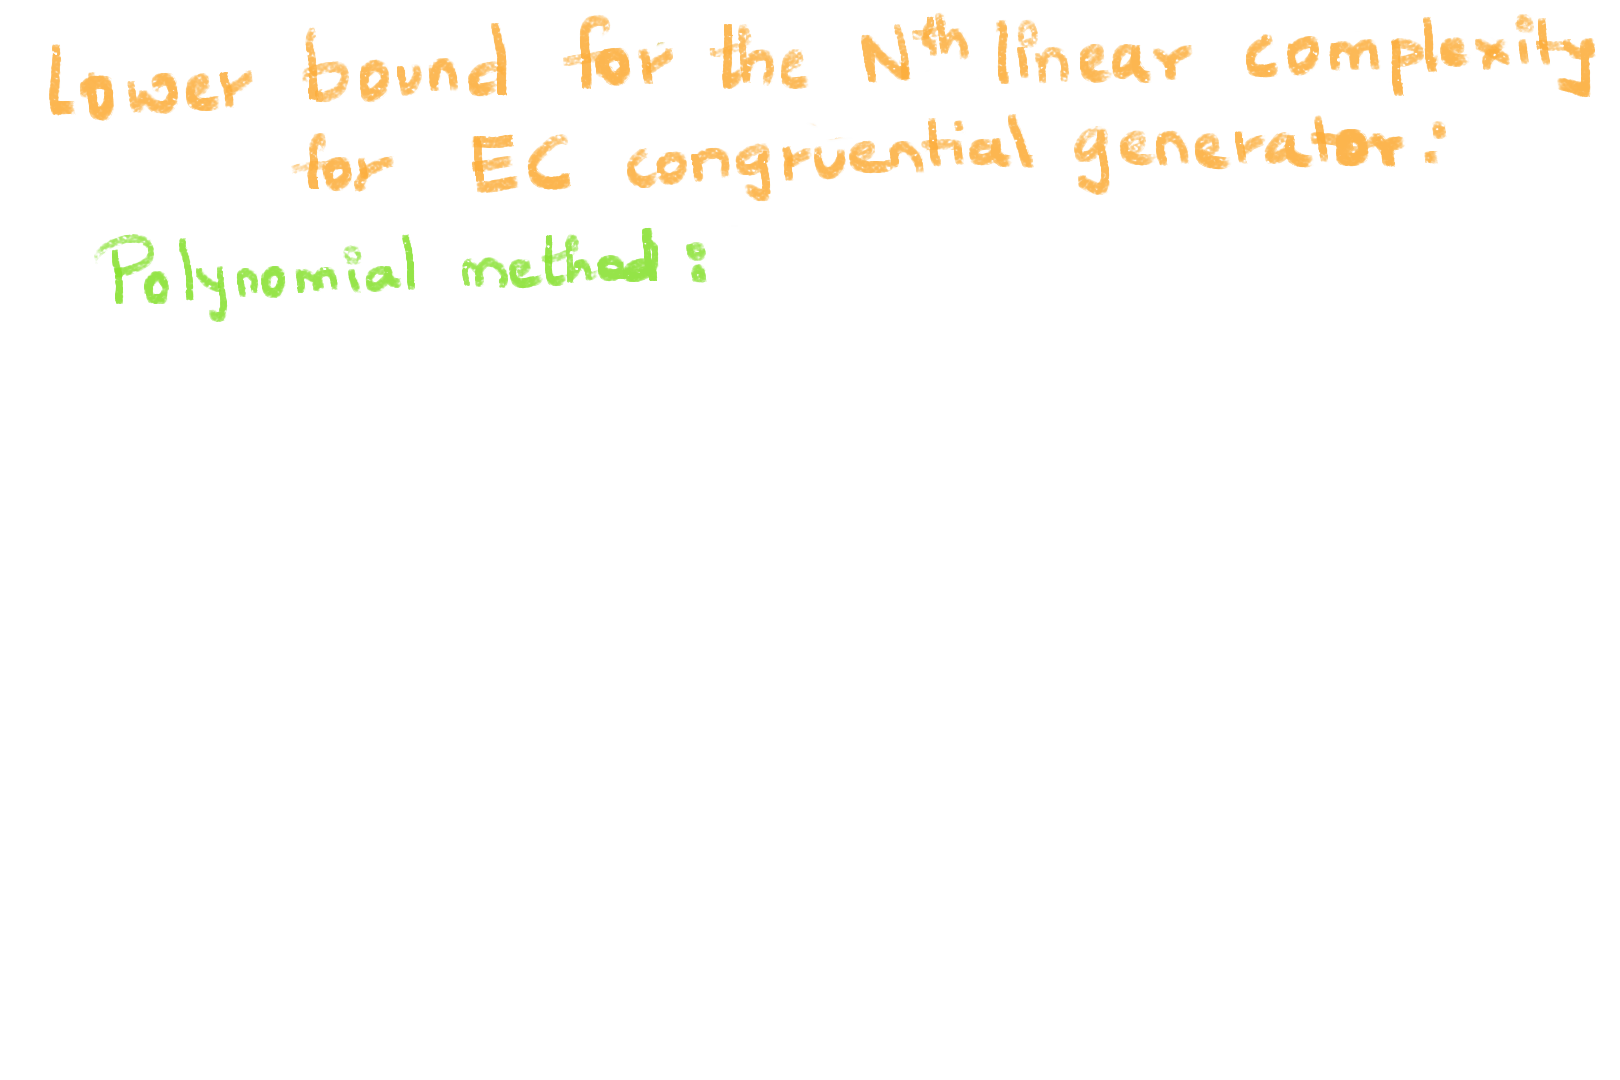 Lower bound for the Nth linear complexity
for EC congruential generator:
Polynomial method: